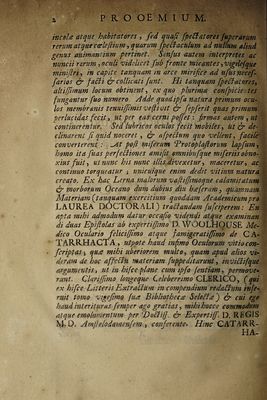 2 PROOEMIUM.
incolæ atque habitatores, sed quasi spectatores superarum
rerum atque cœlestium, quarum spectaculum ad nullum aliud
genus animantium pertinet. Sensus autem interpretes ac
nuncii rerum, oculi videlicet sub fronte micantes, vigilesque
ministri, in capite tanquam in arce mirifice ad usus neces-
sarios & facti & collicati sunt. Hi tanquam spectatores,
altissimum locum obtinent, ex quo plurima conspicientes
fungantur suo munere. Adde quod ipsa natura primum ocu-
los membranis tenuissimis vestivit & sepserit quas primum
perlucidas fecit, ut per eas cerni posset: firmas autem, ut
continerentur. Sed lubricos oculos fecit mobiles, ut & de-
clinarent si quid noceret, & aspectum quo velient, facile
converterent: At post miserum Protoplastorum lapsum,
homo ita suas perfectiones amisit omnibusque miseriis obno-
xius fuit, ut nunc his nunc aliis divexetur, maceretur, ac
continuo torqueatur; unicuique enim dedit vitium natura
creato. Ex hac Lerna malorum vastissimoque calamitatum
& morborum Oceano dum dubius diu hæserim, quamnam
Materiam (tanquam exercitium quoddam Academicum pro
LAUREA DOCTORALI) tractandam susciperem: En
apta mihi admodum datur occasio videndi atque examinan
di duas Epistolas ab expertissimo D. WOOLHOUSE Me-
dico Oculario felicissimo atque famigeratissimo de CA-
TARRHACTA, utpote haud infimo Oculorum vitio con-
scriptas, quæ mihi uberiorem multo, quam apud alios vi-
deram de hoc affectu materiam suppeditarunt, invictisque
argumentis, ut in hisce plane cum ipso sentiam, permove-
rant. Clarissimo longeque Celeberrimo CLERICO, (qui
ex hisce Literis Extractum in compendium redactum inse-
ruit tomo vigesimo suæ Bibliothecæ Selectæ) & cui ego
haud interituras semper ago gratias, mihi hocce commodum
atque emolumentum per Doctiss. & Expertiss. D. REGIS
M.D. Amstelodamensem, conferente. Hinc CATARR-
HA-